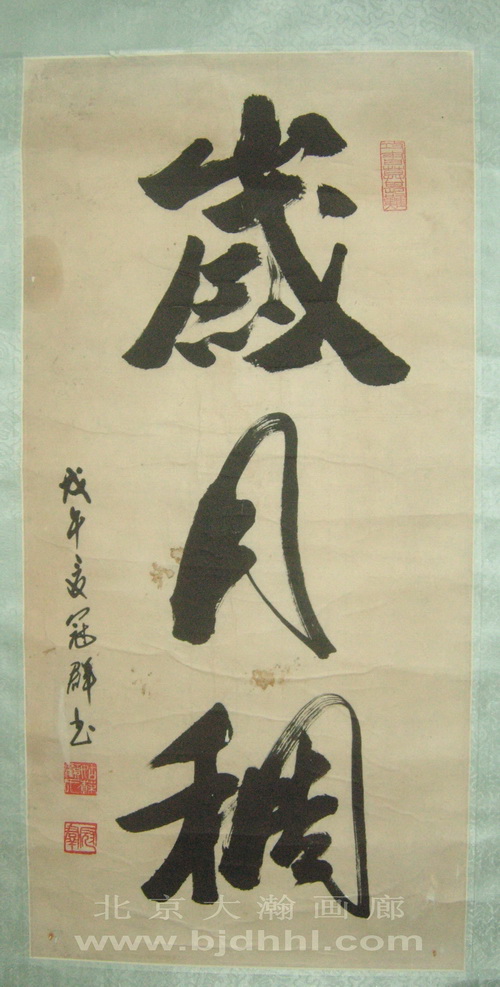 歲月稠
戊午夏冠群书
北京大瀚画廊
www.bjdhhl.com